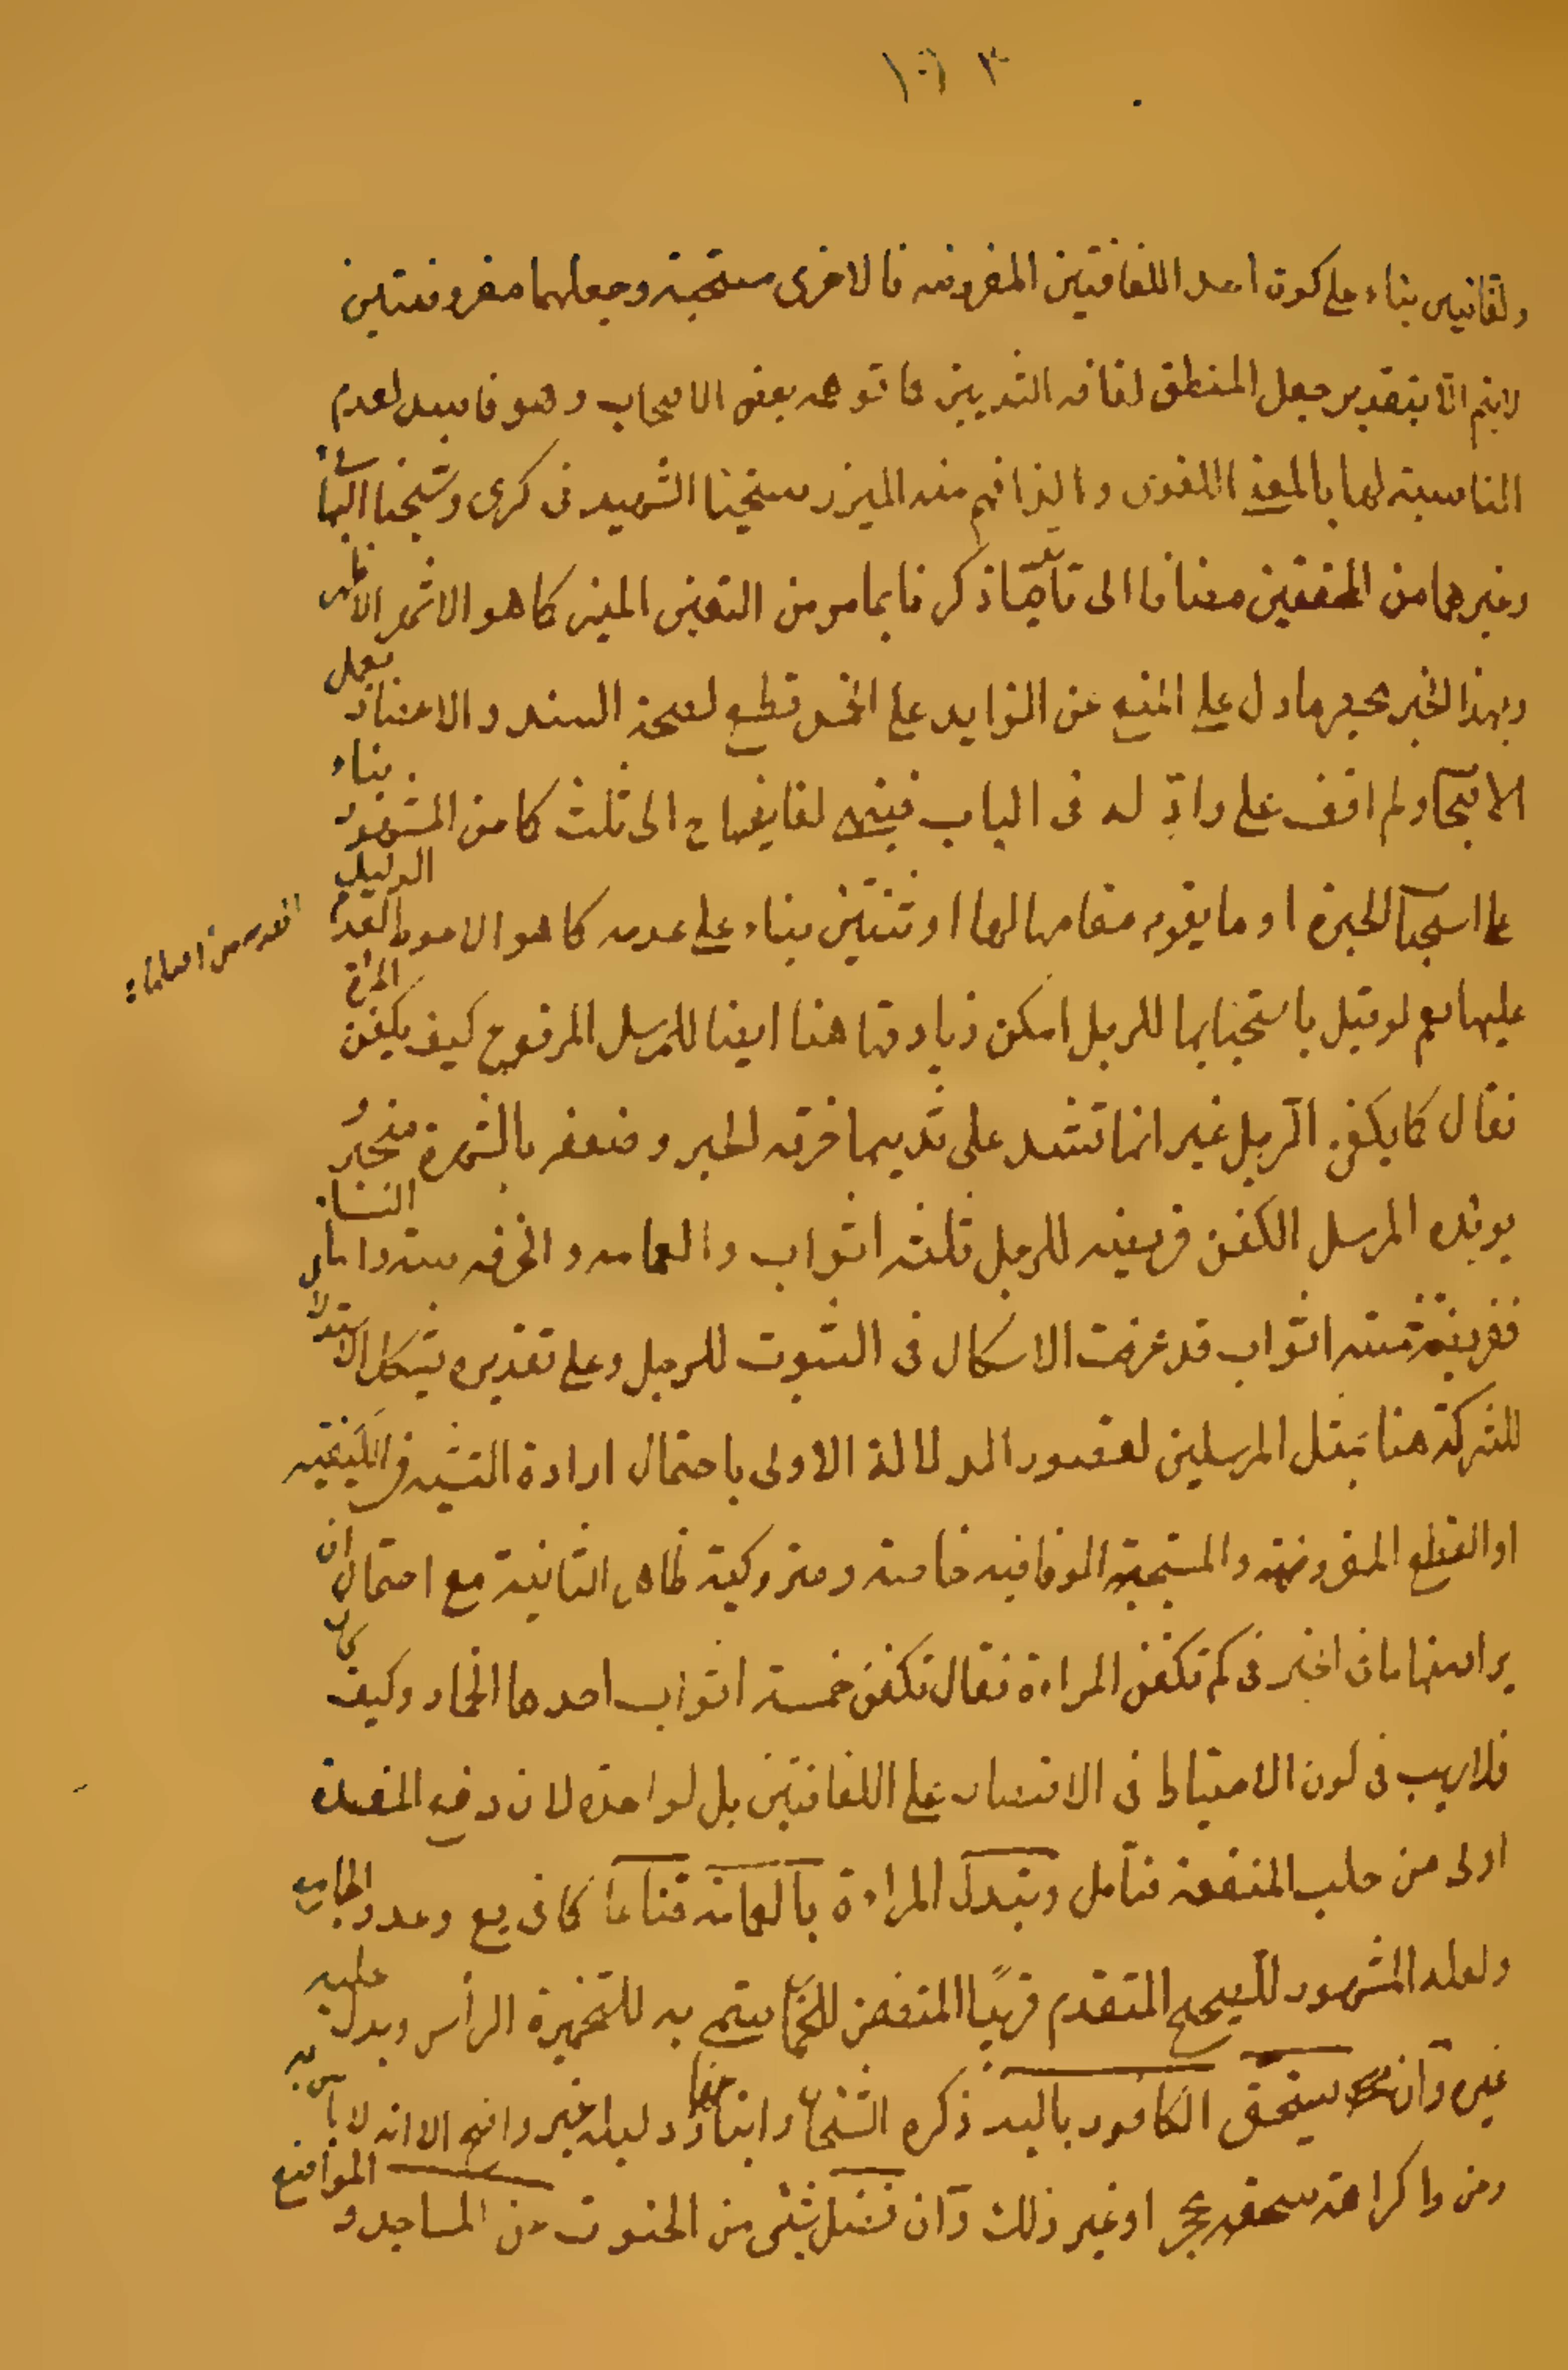 ١٦٣
ولفافتين بناء على كون احد اللفافتين المفروضه فالاخرى مستحبة وجعلهما مفروضتين
لايتم الا بتقدير جعل المنطق لفافه الثديين كما توهمه بعض الاصحاب وهو فاسد لعدم
المناسبة لها بالمعنى اللغوى وانما فهم منه الميزر شيخنا الشهيد فى كرى وشيخنا البهائى
وغيرهما من المحققين مضافا الى تايده ما ذكرنا بما مر من التعين الميزر كما هو الاشهر الاظهر
وبهذا الخبر يخص ما دل على المنع عن الزايد على الخمس قطع لصحة السند والاعتضاد بعمل
الاصحاب ولم اقف على راد له فى الباب فينتهى لفايفها ح الى ثلث كما من المشهور بناء
على استحباب الحبرة او ما يقوم مقامها لها او ثنتين بناء على عدمه كما هو الاحوط لعدم الدليل
عليها نعم لو قيل باستحبابها للرجل امكن زيادتها هنا ايضا للمرسل المرفوع كيف يكفن المراة
فقال كما يكفن الرجل غير انما تشد على ثدييها خرقه الخبر وضعفه بالشهرة منجبر و
يويده المرسل الكفن فريضه للرجل ثلثه اثواب والعمامه والخرقه سنه واما النساء
ففريضته خمسه اثواب قد عرفت الاشكال فى الثبوت للرجل وعلى تقديره يشكل الاستدلال
للشركة هنا بمثل المرسلين لقصور الدلالة الاولى باحتمال ارادة التشبيه فى الكيفيه
او القطع المفروضة والمستحبة الموفافيه خاصه ومتروكية ظاهر الثانية مع احتمال ان
يراد منها ما فى الخبر فى كم تكفن المراءة فقال تكفن خمسة اثواب احدها الخمار وكيف كان
فلا ريب فى كون الاحتياط فى الاقتصار على اللفافتين بل لواحدة لان دفع المفسدة
اولى من جلب المنفعة فتامل وتبدل المراءة بالعمامة قناعا كما فى يع وعد والجامع
ولعله المشهور للصحيح المتقدم قريبا المتضمن للخمار يتم به للتخمير الراس ويدل عليه
غيره وان يسحق الكافور باليد ذكره الشيخان واتباعهما ودليله غير واضح الا انه لا باس به
ومن وا كراهة سحقه بحجر او غير ذلك وان فضل شئى من الحنوت عن المساجد و المواضع
القدس من العلماء